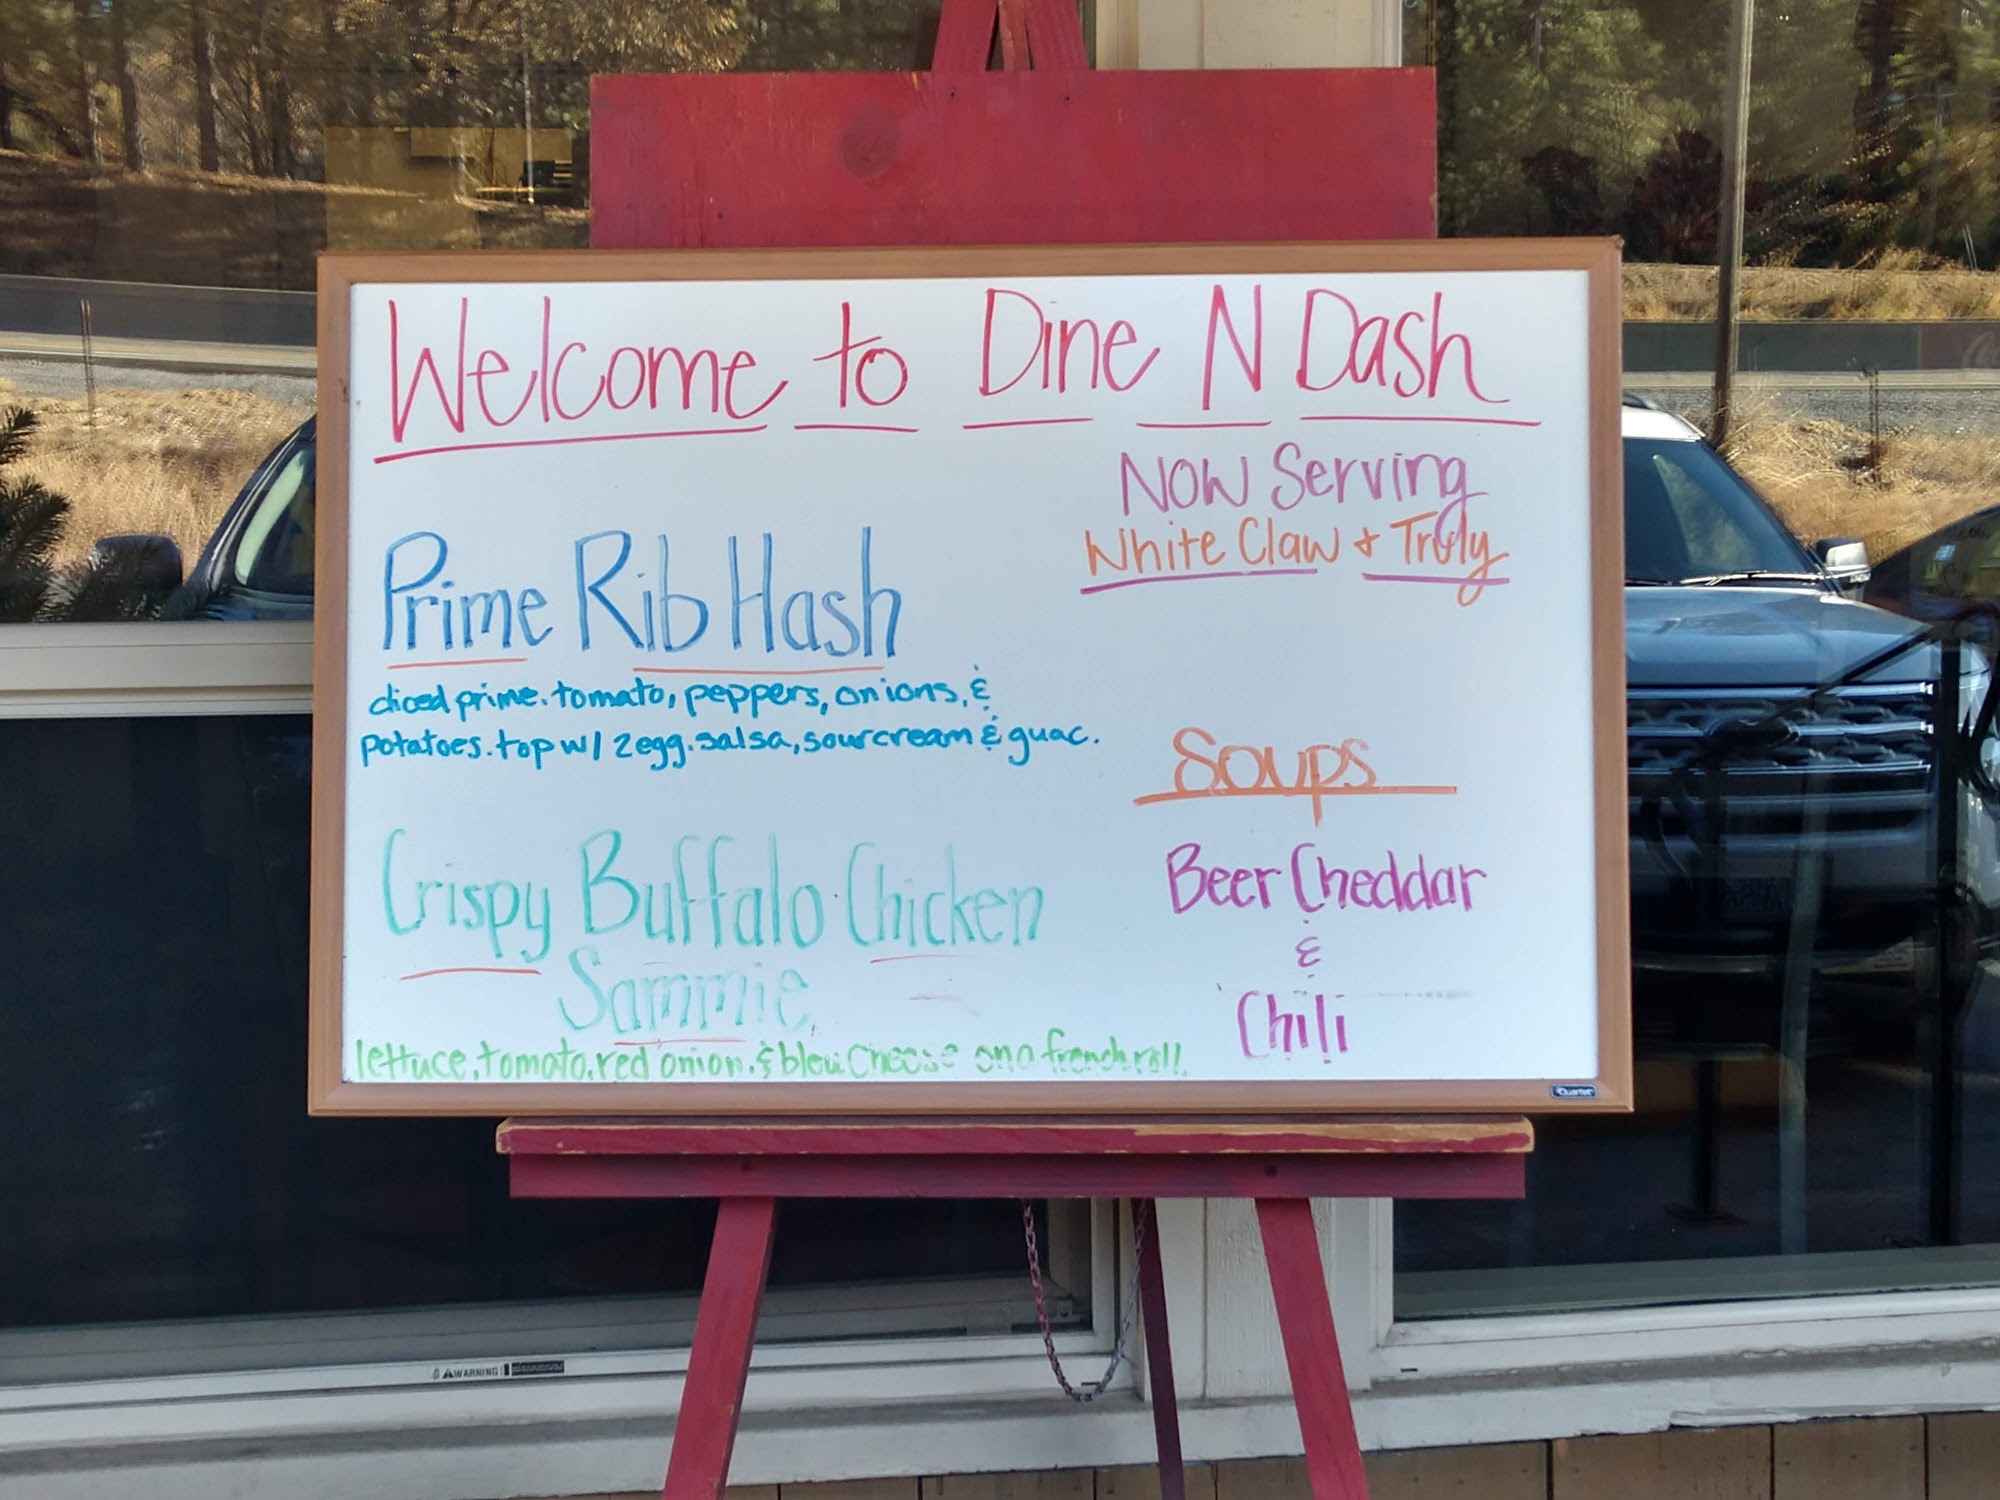 Welcome to Dine N Dash
Now Serving
White Claw & Truly
Prime Rib Hash
diced prime. tomato, peppers, onions, &
potatoes. top w/ 2 egg. salsa, sourcream & guac.
Soups
Beer Cheddar
&
Chili
Crispy Buffalo Chicken
Sammie
lettuce, tomato, red onion, & bleu cheese on a french roll.
Quartet
WARNING!